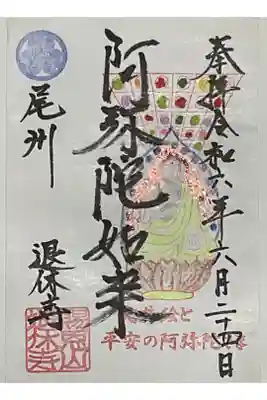 奉拝令和六年六月二十四日
阿弥陀如来
尾州
退休寺
絵と
平安の阿弥陀